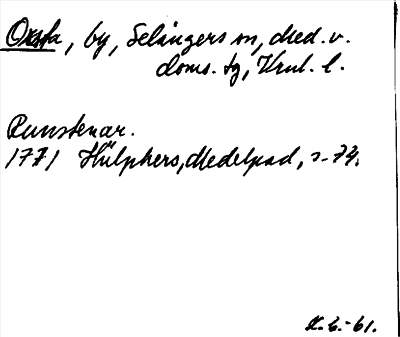 Oxsta, by, Selångers sn, Med. v.
doms. tg, Vnl. l.
Runstenar.
1771 Hülphers, Medelpad, s. 74.
K. G. -61.